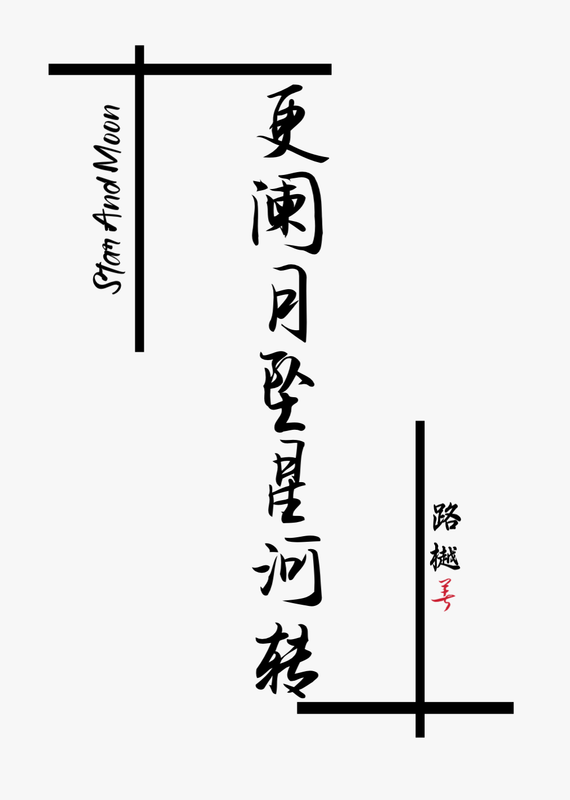 Star And Moon
更阑月坠星河转
路樾著